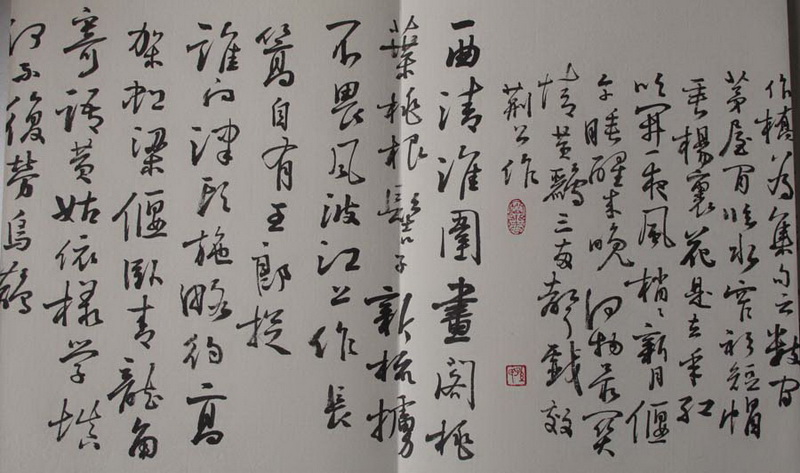 作橋為集句云数间
茅屋閒臨水窄衫短帽
垂楊裏花是去年紅
吹開一夜風梢〻新月偃
午睡醒来晚何物最関
情黄鸝三两聲戲效
荆公作
清淮圍畫閣桃
葉桃根髻子新梳掠
不畏風波江上作長
篙自有王郎捉
誰向津頭施略彴高
架虹梁偃卧青龍角
寄語黄姑依様学填
河不復勞烏鵲